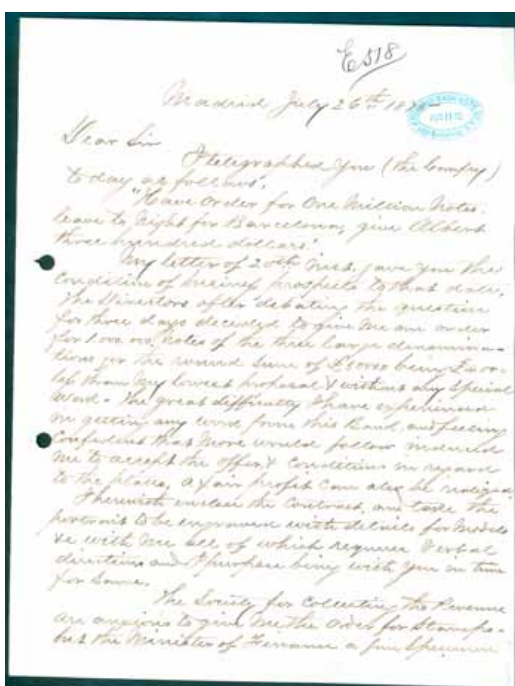 E518
Madrid July 26th 187
Dear Sir
I telegraphed you (the Company)
to day as follows,
"Have Order for One Million Notes.
leave to night for Barcelona, give Albert
three hundred dollars."
My letter of 20th inst. gave you the
Condition of business prospects to that date.
The Directors after debating the question
for three days decided to give me an order
for 1.000.000 Notes of the three large denomina-
tions for the round sum of being
less than my lowest proposal & without any Special
Word. The great difficulty I have experienced
in getting any work from this Bank, and feeling
Confident that More would follow induced
me to accept the offer & Conditions in regard
to the plates, a fair profit can also be realized
I herewith enclose the Contract, and take the
portrait to be engraved with details for Models
&c with me all of which requires Verbal
directions and I propose being with you in time
for Same.
The Society for Collecting the Revenue
are anxious to give me the Order for Stamps-
but the Minister of Finance a fine Specimen